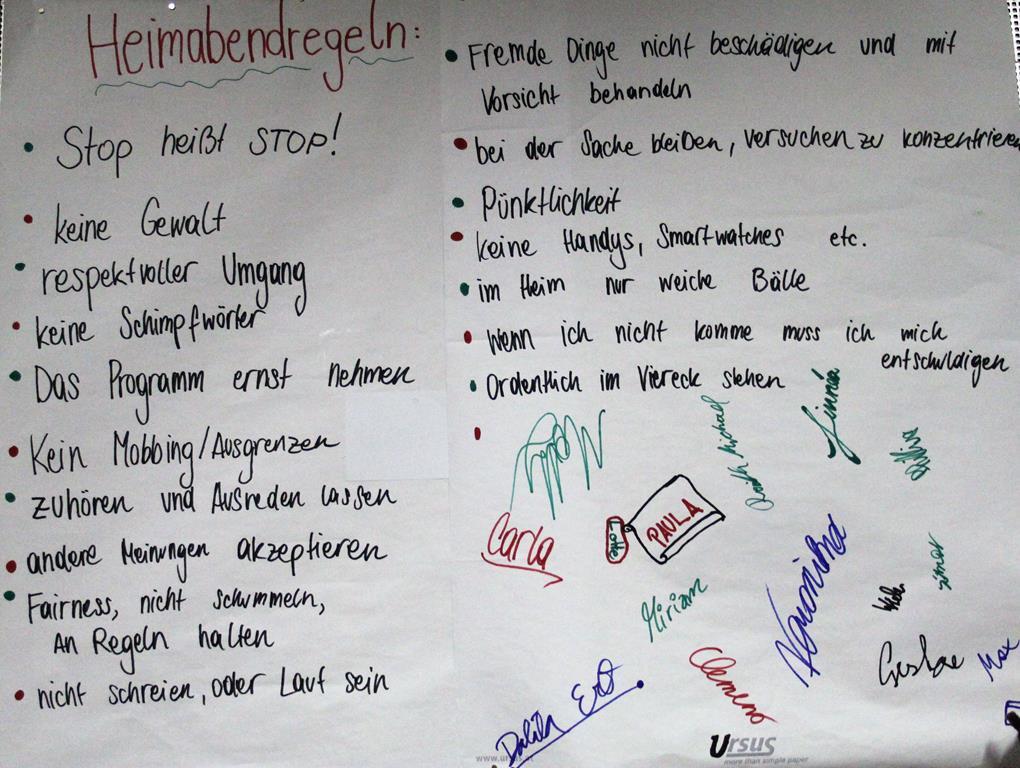 Heimabendregeln:
• Stop heißt STOP!
• keine Gewalt
• respektvoller Umgang
• keine Schimpfwörter
• Das Programm ernst nehmen
• Kein Mobbing/Ausgrenzen
• zuhören und Ausreden lassen
• andere Meinungen akzeptieren
• Fairness, nicht schummeln,
An Regeln halten
• nicht schreien, oder Laut sein
• Fremde Dinge nicht beschädigen und mit
Vorsicht behandeln
• bei der Sache bleiben, versuchen zu konzentrieren
• Pünktlichkeit
• keine Handys, Smartwatches etc.
• im Heim nur weiche Bälle
• Wenn ich nicht komme muss ich mich
entschuldigen
• Ordentlich im Viereck stehen
•
Linnéa
Michael
Carla
Lotte
PAULA
Miriam
Veronika
Clemens
Dalila
Max
Ursus
more than simple paper